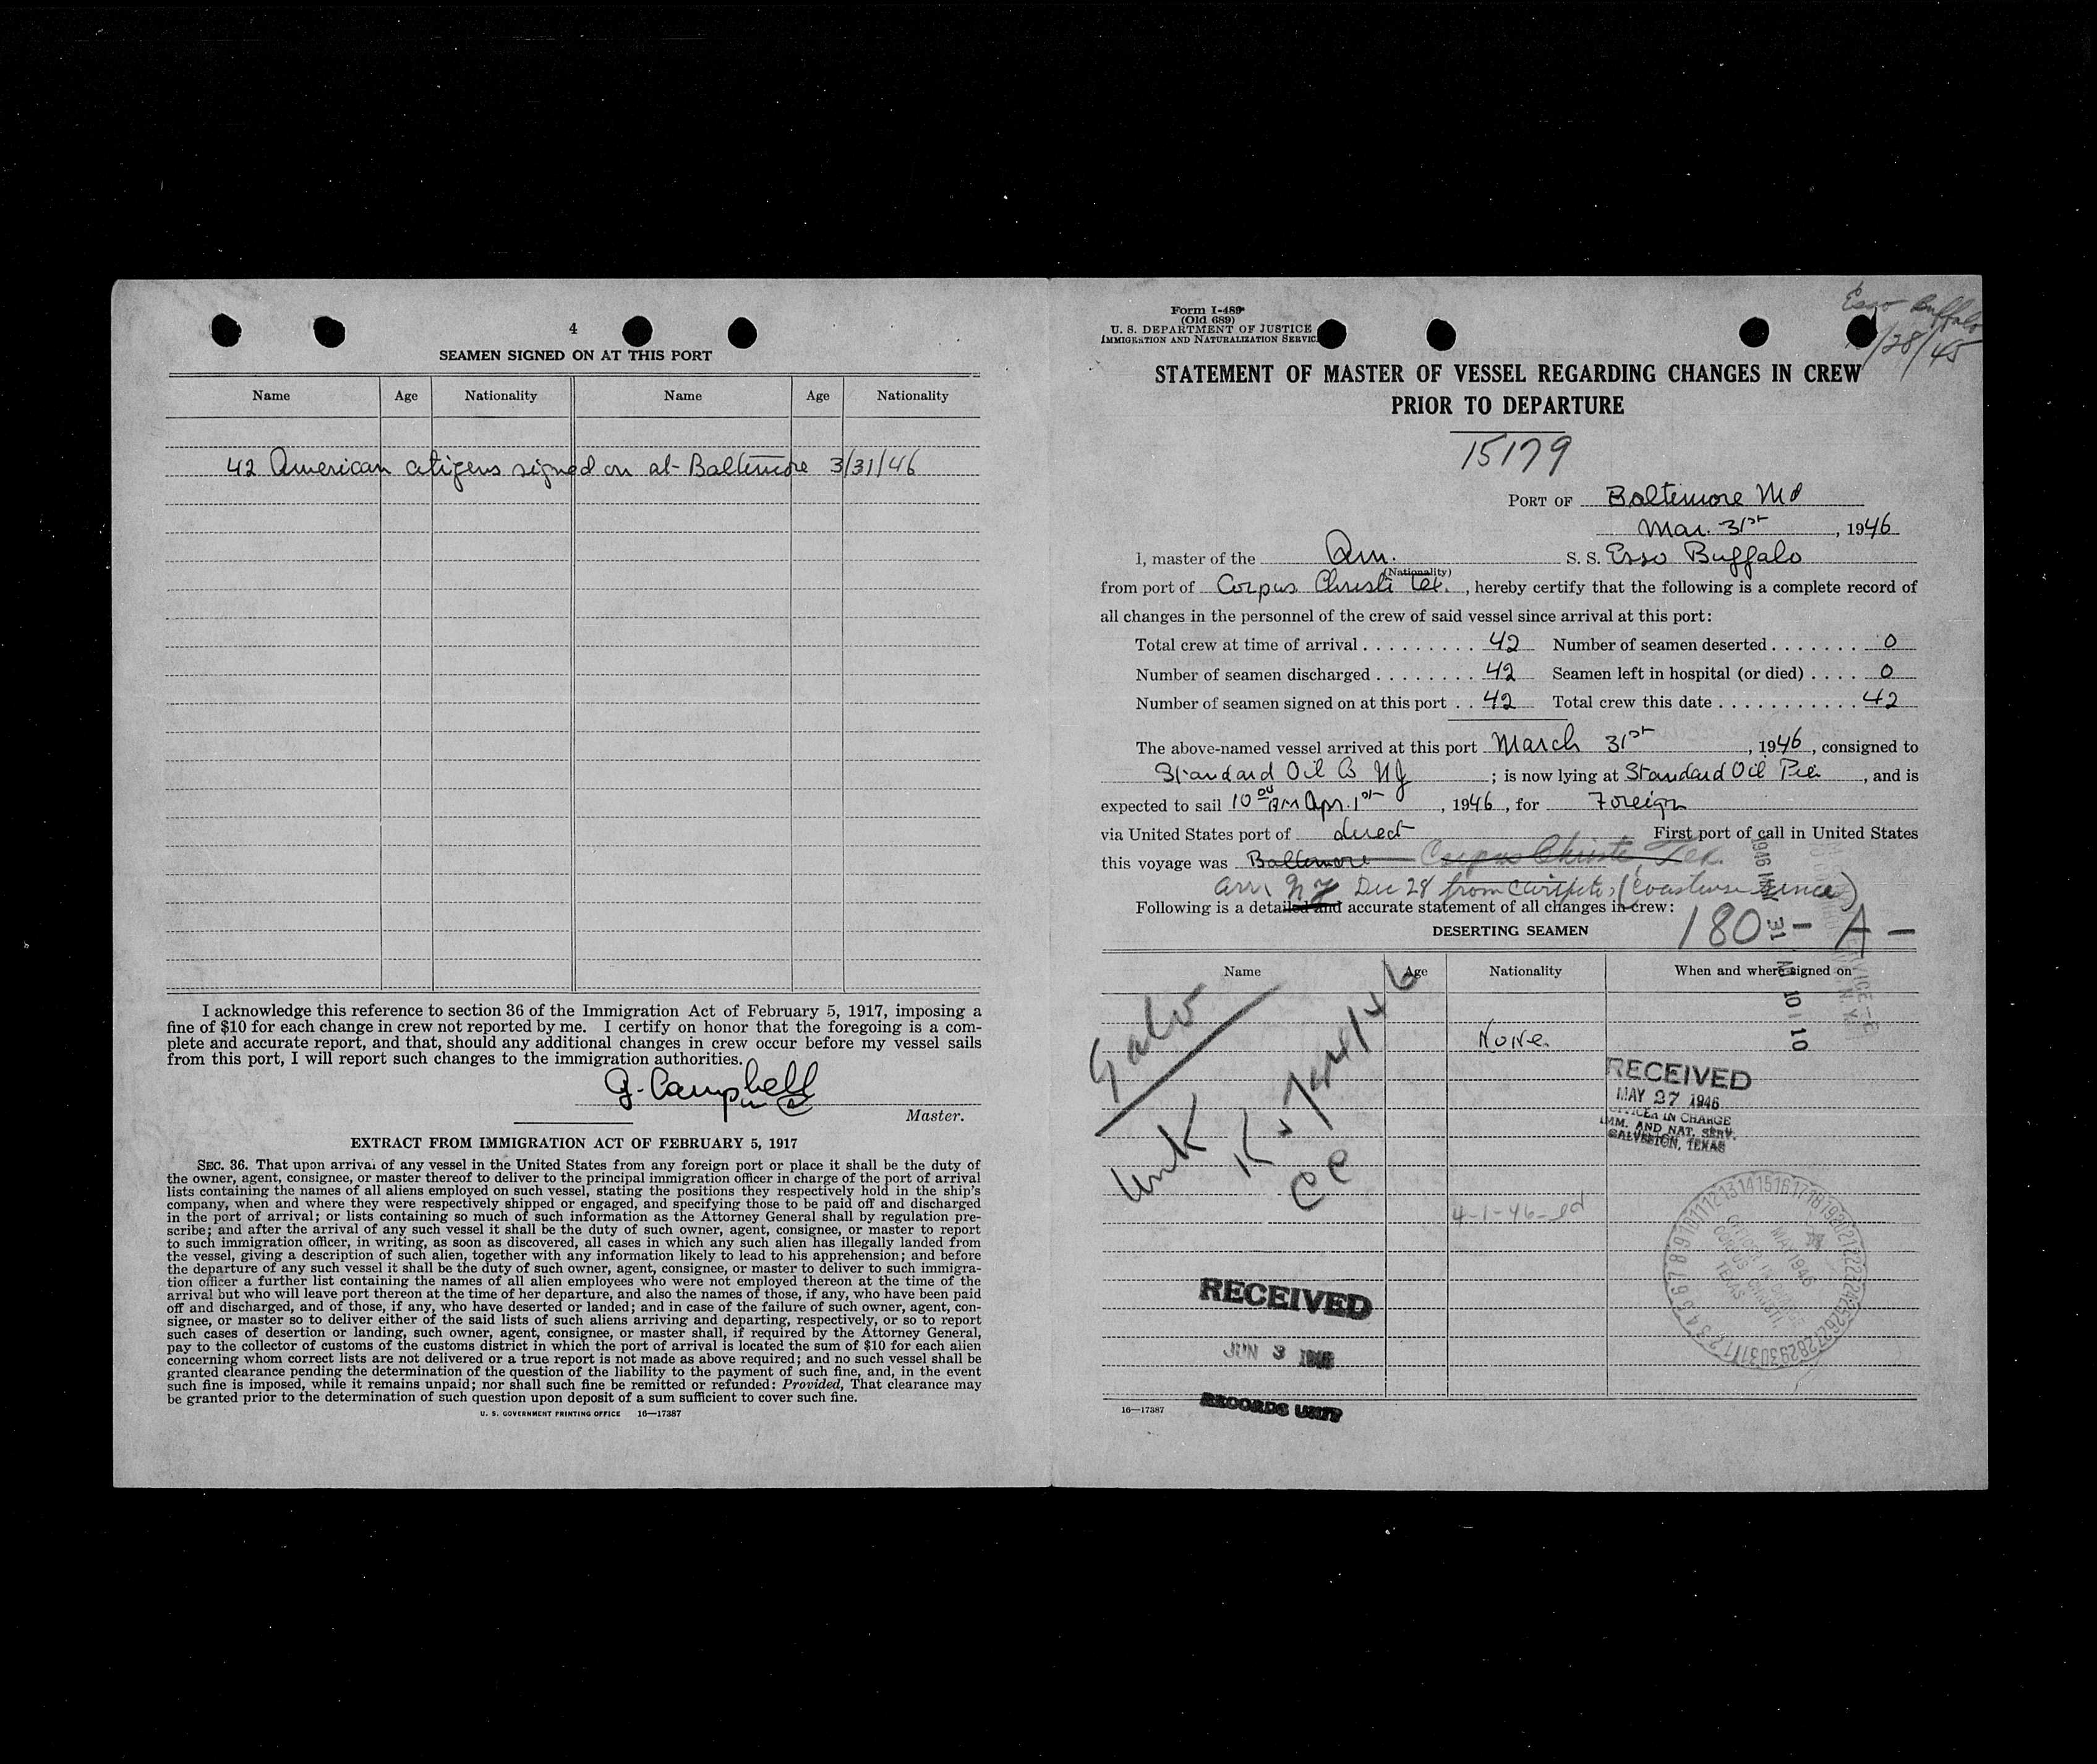 4
SEAMEN SIGNED ON AT THIS PORT
Name Age Nationality Name Age Nationality
42 American citizens signed on at Baltimore 3/31/46
I acknowledge this reference to section 36 of the Immigration Act of February 5, 1917, imposing a
fine of $10 for each change in crew not reported by me. I certify on honor that the foregoing is a com-
plete and accurate report, and that, should any additional changes in crew occur before my vessel sails
from this port, I will report such changes to the immigration authorities.
G. Campbell
Master.
EXTRACT FROM IMMIGRATION ACT OF FEBRUARY 5, 1917
SEC. 36. That upon arrival of any vessel in the United States from any foreign port or place it shall be the duty of
the owner, agent, consignee, or master thereof to deliver to the principal immigration officer in charge of the port of arrival
lists containing the names of all aliens employed on such vessel, stating the positions they respectively hold in the ship's
company, when and where they were respectively shipped or engaged, and specifying those to be paid off and discharged
in the port of arrival; or lists containing so much of such information as the Attorney General shall by regulation pre-
scribe; and after the arrival of any such vessel it shall be the duty of such owner, agent, consignee, or master to report
to such immigration officer, in writing, as soon as discovered, all cases in which any such alien has illegally landed from
the vessel, giving a description of such alien, together with any information likely to lead to his apprehension; and before
the departure of any such vessel it shall be the duty of such owner, agent, consignee, or master to deliver to such immigra-
tion officer a further list containing the names of all alien employees who were not employed thereon at the time of the
arrival but who will leave port thereon at the time of her departure, and also the names of those, if any, who have been paid
off and discharged, and of those, if any, who have deserted or landed; and in case of the failure of such owner, agent, con-
signee, or master so to deliver either of the said lists of such aliens arriving and departing, respectively, or so to report
such cases of desertion or landing, such owner, agent, consignee, or master shall, if required by the Attorney General,
pay to the collector of customs of the customs district in which the port of arrival is located the sum of $10 for each alien
concerning whom correct lists are not delivered or a true report is not made as above required; and no such vessel shall be
granted clearance pending the determination of the question of the liability to the payment of such fine, and, in the event
such fine is imposed, while it remains unpaid; nor shall such fine be remitted or refunded: Provided, That clearance may
be granted prior to the determination of such question upon deposit of a sum sufficient to cover such fine.
U. S. GOVERNMENT PRINTING OFFICE 16—17387
Form I-489
(Old 689)
U. S. DEPARTMENT OF JUSTICE
IMMIGRATION AND NATURALIZATION SERVICE
Esso Buffalo
/28/45
STATEMENT OF MASTER OF VESSEL REGARDING CHANGES IN CREW
PRIOR TO DEPARTURE
15179
PORT OF Baltimore Md
Mar. 31st, 1946
I, master of the Am. S. S. Esso Buffalo
(Nationality)
from port of Corpus Christi Tex., hereby certify that the following is a complete record of
all changes in the personnel of the crew of said vessel since arrival at this port:
Total crew at time of arrival . . . . . . . . . 42 Number of seamen deserted . . . . . . . 0
Number of seamen discharged . . . . . . . . 42 Seamen left in hospital (or died) . . . . 0
Number of seamen signed on at this port . . 42 Total crew this date . . . . . . . . . . . 42
The above-named vessel arrived at this port March 31st, 1946, consigned to
Standard Oil Co NJ; is now lying at Standard Oil Pier, and is
expected to sail 10 00 AM Apr. 1st, 1946, for Foreign
via United States port of direct First port of call in United States
this voyage was Baltimore Corpus Christi, Tex.
arr. N Y Dec 28 from Caripito (Coastwise since)
Following is a detailed and accurate statement of all changes in crew:
180 - A -
DESERTING SEAMEN
Name Age Nationality When and where signed on
1946 MAY 31 AM 10 10
None.
Galv
RECEIVED
MAY 27 1946
OFFICER IN CHARGE
IMM. AND NAT. SERV.
GALVESTON, TEXAS
CC
4-1-46-
MAY 1946
OFFICER IN CHARGE
CORPUS CHRISTI,
TEXAS
RECEIVED
JUN 3 1946
RECORDS UNIT
16—17387